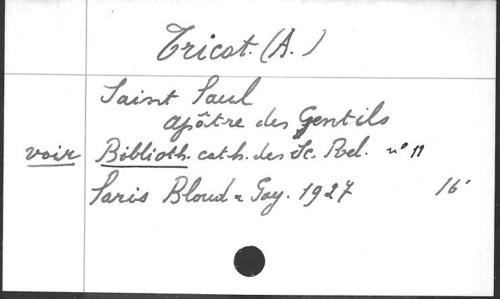 Tricot. (A.)
Saint Paul
apôtre des Gentils
voir Biblioth. cath. des Sc. Rel. n° 11
Paris Bloud & Gay. 1927 16°